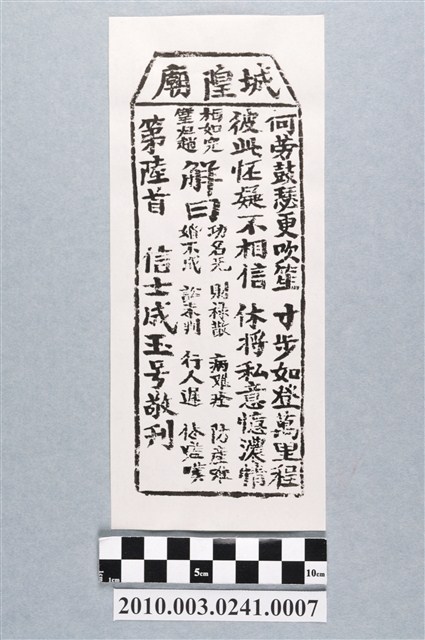 城隍廟
何勞鼓瑟更吹笙 寸步如登萬里程
彼此怀疑不相信 休将私意憶濃情
相如完
璧归趙
解曰
功名无 財祿散 病难痊 防産难
婚不成 訟未判 行人遲
第陸首 信士戚玉号敬刋
1cm 5cm 10cm
2010.003.0241.0007